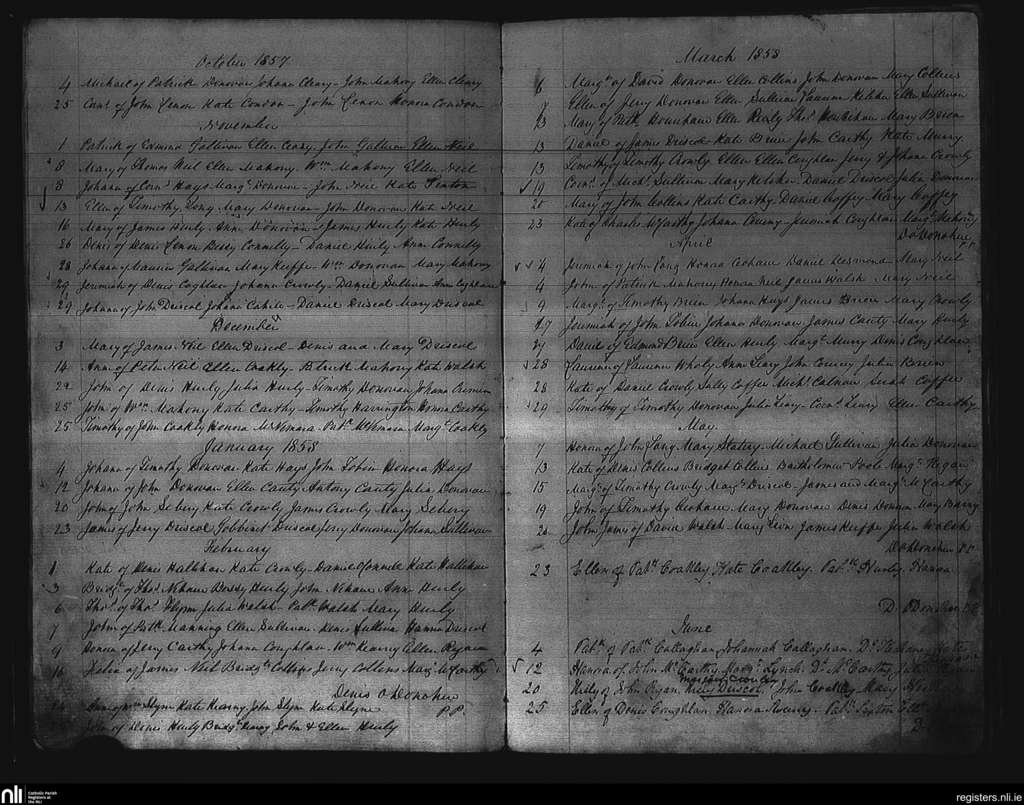 October 1857
4 Michael of Patrick Donovan Johana Cleary - John Mahony Ellen Cleary
25 Cons. of John Lenon Kate Condon - John Lenon Honora Condon
November
1 Patrick of Edmund Gallivan Ellen John Gallivan Ellen Neil
8 Mary of Thomas Neil Ellen Mahony Wm Mahony Ellen Neil
8 Johana of Corns Hays Margt Donovan - John Neil Kate
13 Ellen of Timothy Long Mary Donovan - John Donovan Kate Neil
16 Mary of James Hurly Ann Donovan - James Hurly Kate Hurly
26 Denis of Denis Lenon Bessy Connelly - Daniel Hurly Ann Connelly
28 Johana of Maurice Gallivan Mary Keiffe - Wm Donovan Mary Mahony
29 Jeremiah of Denis Coghlan Johana Crowly - Daniel Sullivan Ann Coghlan
29 Johana of John Driscol Johana Cahill - Daniel Driscol Mary Driscol
December
3 Mary of James Neil Ellen Driscol - Denis and Mary Driscol
14 Ann of Peter Neil Ellen Coakly - Patrick Mahony Kate Walsh
22 John of Denis Hurly Julia Hurly - Timothy Donovan Johana
25 John of Wm Mahony Kate Carthy - Timothy Harrington Honora Carthy
25 Timothy of John Coakly Honora McNemara - Patk McNemara Margt Coakly
January 1858
4 Johana of Timothy Donovan Kate Hays John Tobin Honora Hays
12 Johana of John Donovan Ellen Canty Antony Canty Julia Donovan
20 John of John Sebery Kate Crowly James Crowly Mary Sebery
23 James of Jery Driscol Driscol Jery Donovan Johana Sullivan
February
1 Kate of Denis Hallihan Kate Crowly - Daniel Connell Kate Hallihan
3 Bridgt of Thos Nehane Bessy Hurly John Nehane Ann Hurly
6 Thos. of Thos Flynn Julia Walsh - Patk Walsh Mary Hurly
7 John of Patk Manning Ellen Sullivan - Denis Sullivan Hanna Driscol
9 Honora of Jery Carthy Johana Coughlan Wm Kearny Ellen Regan
16 of James Neil Bridgt Collins Jery Collins Margt McCarthy
Denis O Donohue
P.P.
24 Flynn Kate John Flynn Kate Flynn
John of Denis Hurly Bridgt John & Ellen Hurly
March 1858
6 Margt of David Donovan Ellen Collins John Donovan Mary Collins
Ellen of Jery Donovan Ellen Sullivan Kelsher Ellen Sullivan
13 Mary of Patk Hourihane Ellen Thos Hourihane Mary Brien
13 Daniel of James Driscol Kate Brien John Carthy Kate Murry
13 Timothy of Timothy Crowly Ellen Ellen Coughlan Jery & Johana Crowly
19 Corns. of Michl Sullivan Mary Kelsher Daniel Driscol Julia Donovan
20 Mary of John Collins Kate Carthy Daniel Coffey Mary Coffey
23 Kate of Charles McCarthy Johana Jeremiah Coughlan Margt Mahony
D. O Donohue P.P.
April
4 Jeremiah of John Long Honora Daniel Desmond Mary Neil
4 John of Patrick Mahony Honora Neil James Walsh Mary Neil
9 Margt of Timothy Brien Johana Hays James Brien Mary Crowly
17 Jeremiah of John Tobin Johana Donovan James Canty Mary Hurly
27 Daniel of Edmond Brien Ellen Hurly Margt Murry Denis Coughlan
28 of Wholy Ann Leary John Julia Brien
28 Kate of Daniel Crowly Sally Coffee Michl Calnan Sarah Coffee
29 Timothy of Timothy Donovan Julia Leary - Corns Leary Ellen Carthy
May
7 Honora of John Long Mary Slatery Michael Sullivan Julia Donovan
13 Kate of Denis Collins Bridget Collins Bartholomew Poole Margt Regan
15 Margt of Timothy Crowly Margt Driscol - James and Margt McCarthy
19 John of Timothy Mary Donovan Denis Donovan Mary Barry
21 John James of David Walsh Mary James Keiffe Julia Walsh
D. O Donohue P.P.
23 Ellen of Patk Coakley Kate Coakley. Patk Hurley Hanora
D O Donohue P.P.
June
4 Patk of Patk Callaghan Johannah Callaghan. Dl
12 Hanora of John McCarthy Lynch. Dl McCarthy
Margaret Crowley
20 of John Regan. Driscol. John Coakley Mary
25 Ellen of Denis Coughlan Hanora Patk Sexton
nli Catholic Parish
Registers at
the NLI
registers.nli.ie